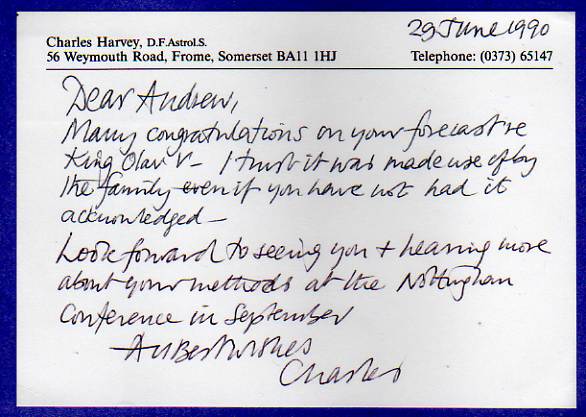 29 June 1990
Charles Harvey, D.F.Astrol.S.
56 Weymouth Road, Frome, Somerset BA11 1HJ Telephone: (0373) 65147
Dear Andrew,
Many congratulations on your forecast re
King Olav V - I trust it was made use of by
the family even if you have not had it
acknowledged -
Look forward to seeing you + hearing more
about your methods at the Nottingham
Conference in September
All Best Wishes
Charles